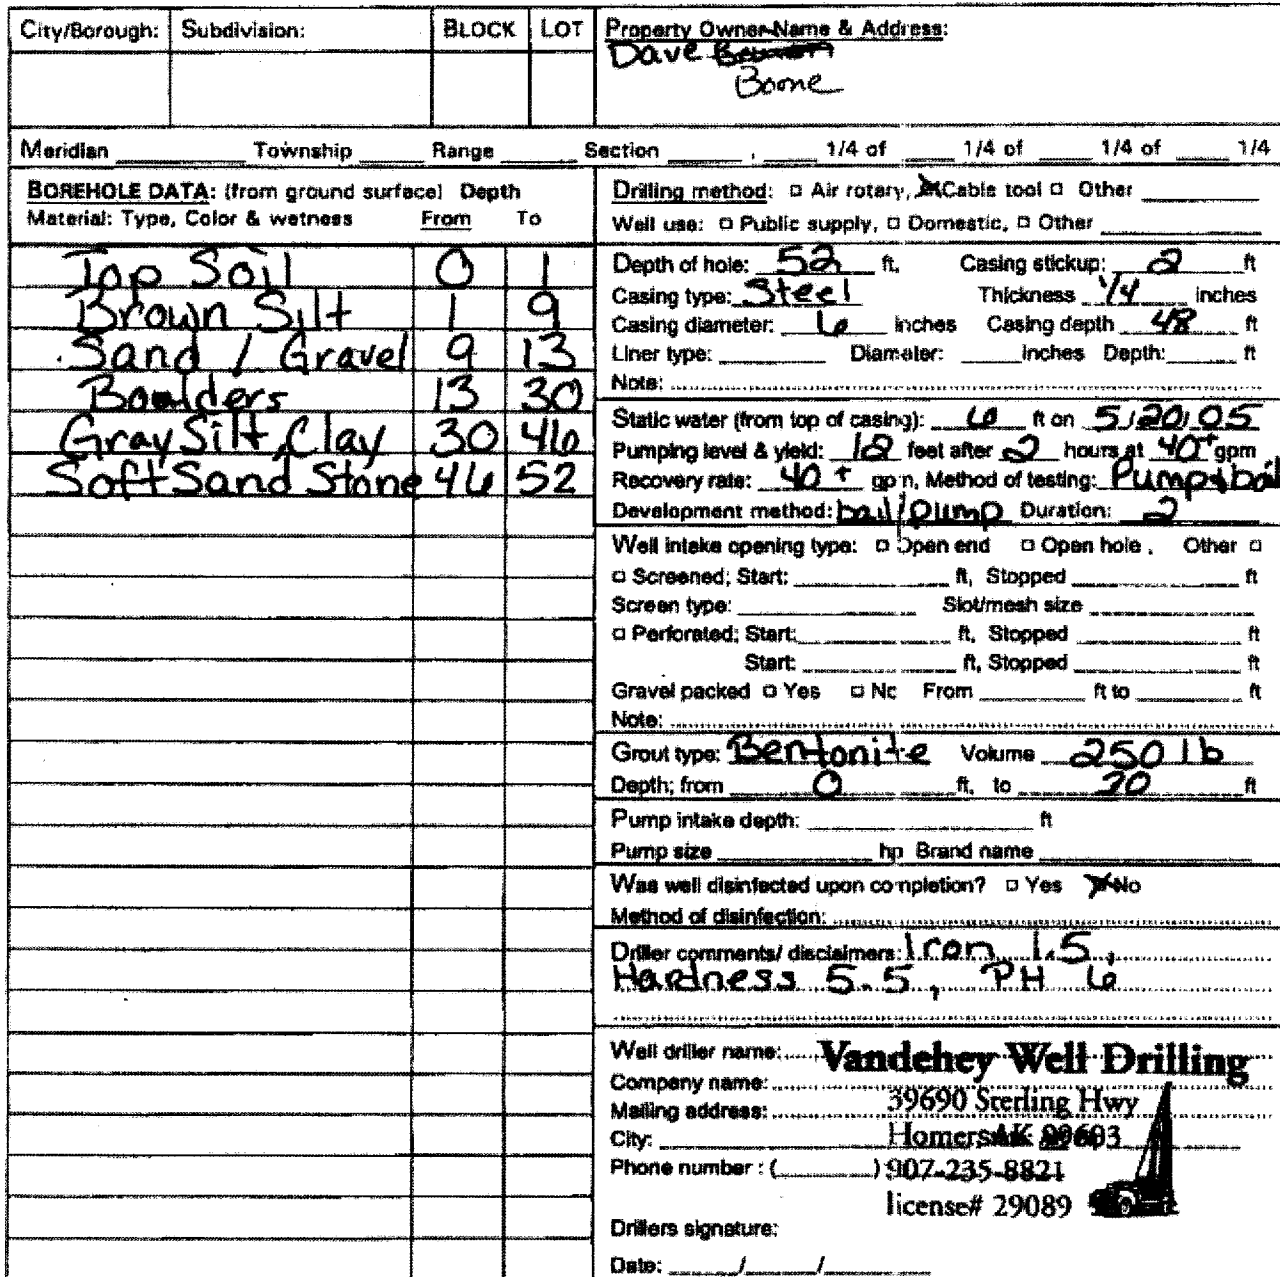 City/Borough: Subdivision: BLOCK LOT Property Owner Name & Address:
Dave
Boone
Meridian ____ Township ____ Range ____ Section ____ , ____ 1/4 of ____ 1/4 of ____ 1/4 of ____ 1/4
BOREHOLE DATA: (from ground surface) Depth
Material: Type, Color & wetness From To
Top Soil 0 1
Brown Silt 1 9
Sand / Gravel 9 13
Boulders 13 30
Gray Silt, Clay 30 46
Soft Sand Stone 46 52
Drilling method: □ Air rotary, ☒ Cable tool □ Other ____
Well use: □ Public supply, □ Domestic, □ Other ____
Depth of hole: 52 ft. Casing stickup: 2 ft
Casing type: Steel Thickness 1/4 inches
Casing diameter: 6 inches Casing depth 48 ft
Liner type: ____ Diameter: ____ inches Depth: ____ ft
Note:
Static water (from top of casing): 6 ft on 5/20/05
Pumping level & yield: 18 feet after 2 hours at 40+ gpm
Recovery rate: 40+ gpm, Method of testing: Pump & bail
Development method: bail/pump Duration: 2
Well intake opening type: □ Open end □ Open hole, Other □
□ Screened; Start: ____ ft, Stopped ____ ft
Screen type: ____ Slot/mesh size ____
□ Perforated; Start: ____ ft, Stopped ____ ft
Start: ____ ft, Stopped ____ ft
Gravel packed □ Yes □ No From ____ ft to ____ ft
Note:
Grout type: Bentonite Volume 250 lb
Depth; from 0 ft, to ____ ft
Pump intake depth: ____ ft
Pump size ____ hp Brand name ____
Was well disinfected upon completion? □ Yes ☒ No
Method of disinfection:
Driller comments/ disclaimers: Iron 1.5,
Hardness 5.5, PH 6
Well driller name: Vandehey Well Drilling
Company name:
Mailing address: 39690 Sterling Hwy
City: Homer AK 99603
Phone number : ( ) 907-235-8821
license# 29089
Drillers signature:
Date: ____/____/____